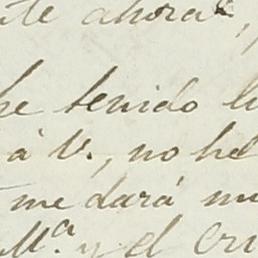 te ahora,
he tenido l
á V., no he
me dará m
M.ª y el cr